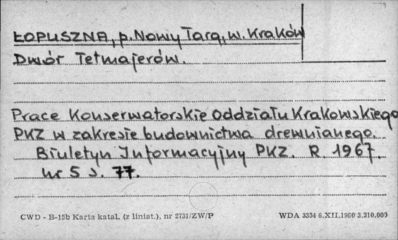 ŁOPUSZNA, p. Nowy Targ, w. Kraków
Dwór Tetmajerów.
Prace Konserwatorskie Oddziału Krakowskiego
PKZ w zakresie budownictwa drewnianego.
Biuletyn Informacyjny PKZ. R. 1967.
nr 5 s. 77.
CWD - B-15b Karta katal. (z liniat.), nr 2731/ZW/P WDA 3334 6.XII.1960 3.210.000